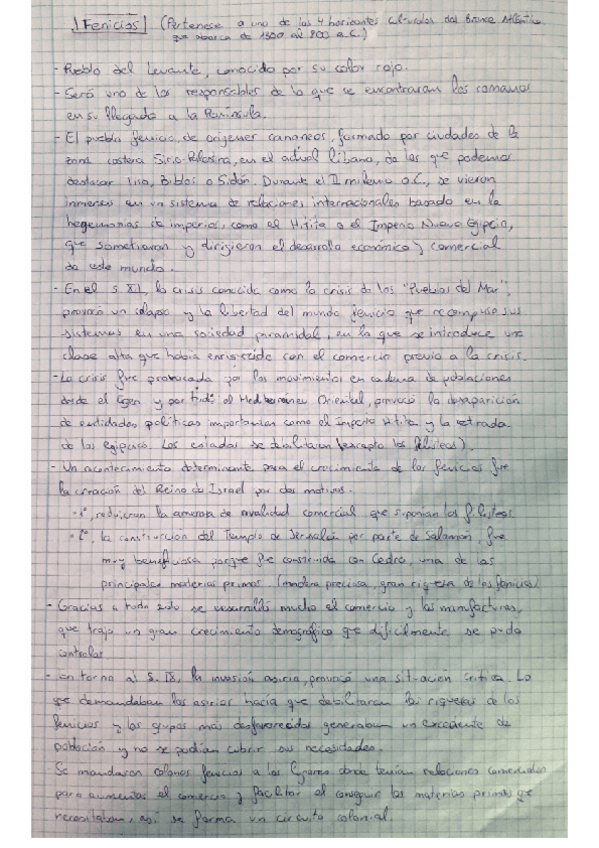 Fenicios (Pertenese a uno de los 4 horizontes culturales del Bronce Atlántico
que abarca de 1300 al 900 a.C.)
- Pueblo del Levante, conocido por su color rojo.
- Será uno de los responsables de lo que se encontraran los romanos
en su llegada a la Península.
- El pueblo fenicio, de origenes cananeos, formado por ciudades de la
zona costera Sirio-Palestina, en el actual Líbano, de las que podemos
destacar Tiro, Biblos o Sidón. Durante el II milenio a.C., se vieron
inmersos en un sistema de relaciones internacionales basado en la
hegemonías de imperios, como el Hitita o el Imperio Nuevo Egipcio,
que sometieron y dirigieron el desarrollo económico y comercial
de este mundo.
- En el s. XII, la crisis conocida como la crisis de los "Pueblos del Mar",
provocó un colapso y la libertad del mundo fenicio que recompuso sus
sistemas en una sociedad piramidal, en la que se introduce una
clase alta que había enriquecido con el comercio previo a la crisis.
- La crisis fue provocada por los movimientos en cadena de poblaciones
desde el Egeo y por todo el Mediterráneo Oriental, provocó la desaparición
de entidades políticas importantes como el Imperio Hitita y la retirada
de los egipcios. Los estados se debilitaron (excepto los filisteos).
- Un acontecimiento determinante para el crecimiento de los fenicios fue
la creación del Reino de Israel por dos motivos.
- 1º, redujeron la amenaza de rivalidad comercial que suponían los filisteos.
- 2º, la construcción del Templo de Jerusalén por parte de Salomón, fue
muy beneficiosa porque fue construido con Cedro, una de las
principales materias primas. (madera preciosa, gran riqueza de los fenicios)
- Gracias a todo esto se desarrolló mucho el comercio y las manufacturas,
que trajo un gran crecimiento demográfico que dificilmente se pudo
controlar.
- En torno al S. IX, la invasión asiria, provocó una situación crítica. Lo
que demandaban los asirios hacía que debilitaran las riquezas de los
fenicios y los grupos más desfavorecidos generaban un excedente de
población y no se podían cubrir sus necesidades.
Se mandaron colonos fenicios a los lugares donde tenían relaciones comerciales
para aumentar el comercio y facilitar el conseguir las materias primas que
necesitaban, así se forma un circuito colonial.